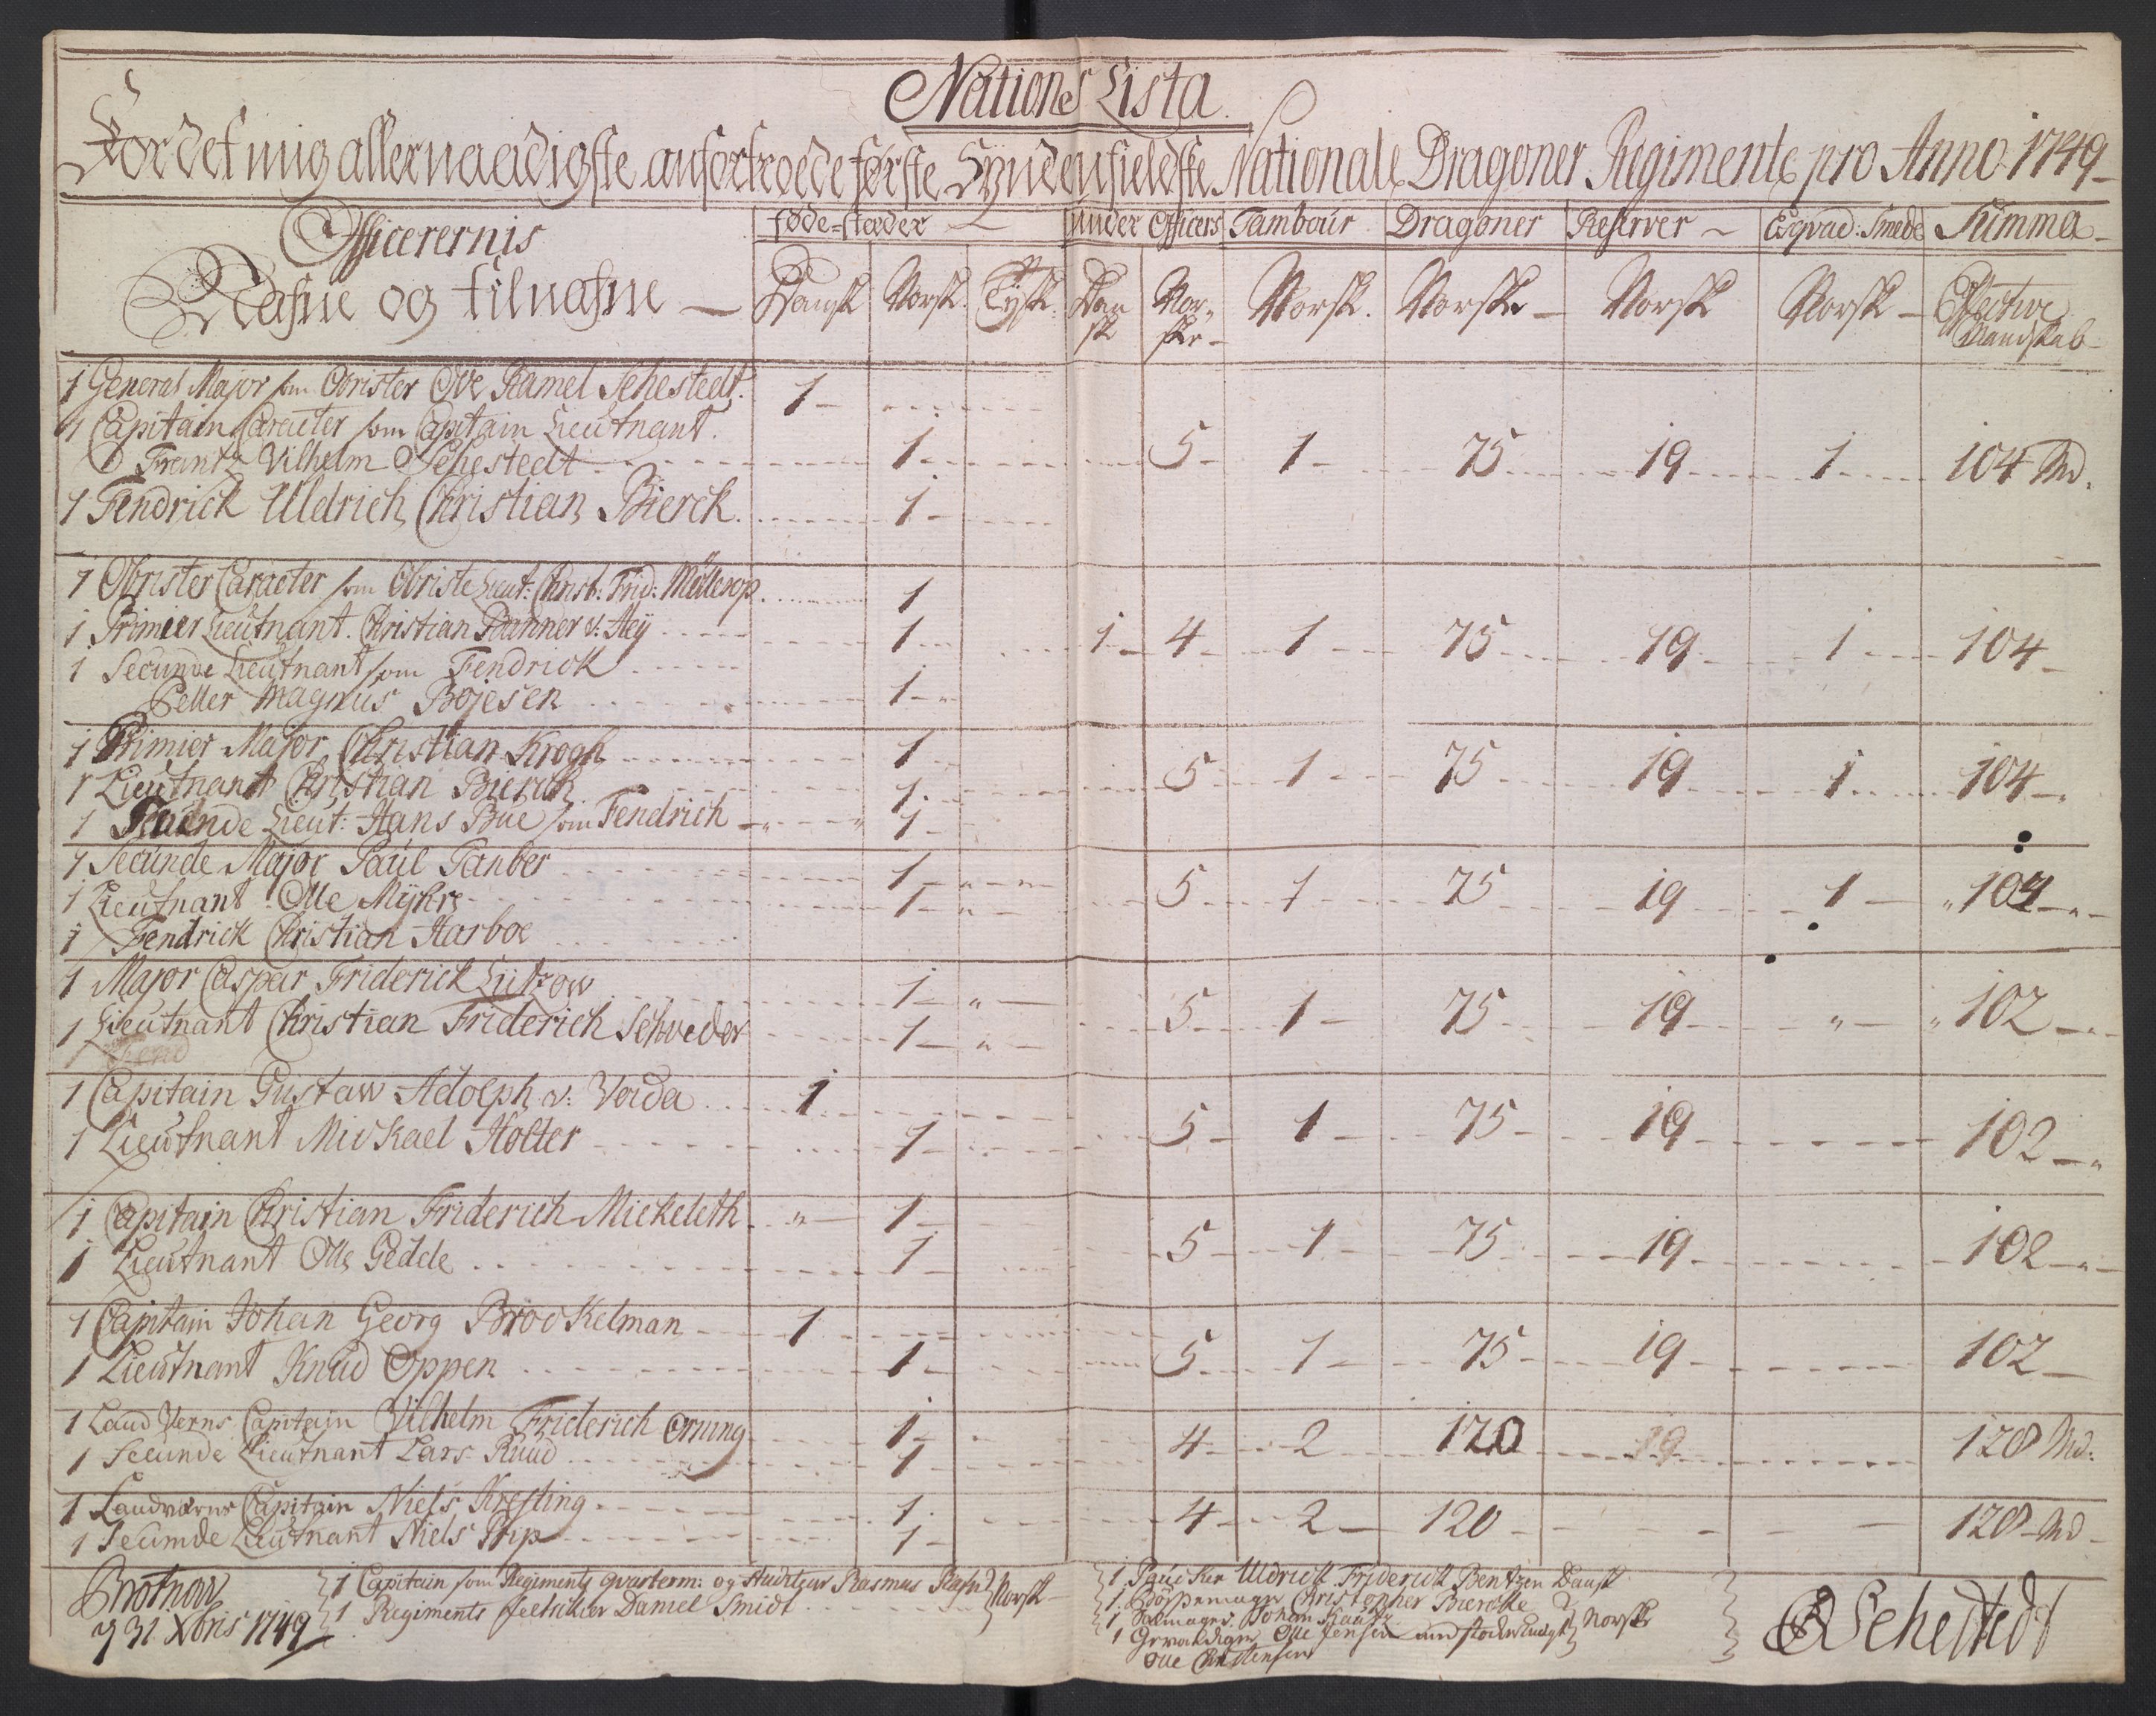 Nations Lista.
For det mig allernaadigste anfortroede første Syndenfieldske Nationale Dragoner Regimente pro Anno 1749
Officerernis
Nafne og tilnafne
føde-stæder Under Officers Tambour Dragoner Reserver Esqvad: Smede Summa
Dansk Norsk. Tyske. Dansk Norske Norsk. Norske Norsk Norsk Effective Mandskab
1 General Major som Obrister Ove Ramel Sehestedt. 1
1 Capitain Caracter som Capitain Lieutnant.
Frantz Vilhelm Sehestedt 1 5 1 75 19 1 104 Md.
1 Fendrick Uldrich Christian Bierck. 1
1 Obrister Caracter som Obriste Lieut: Christ: Frid: Møllerop. 1
1 Primier Lieutnant. Christian Banner v: Aeÿ 1 1 4 1 75 19 1 104
1 Secunde Lieutnant som Fendrick
Petter Magnus Bojesen 1
1 Primier Major Christian Krogh 1
1 Lieutnant Christian Bierck 1 5 1 75 19 1 104
1 Secunde Lieut: Hans Bue som Fendrich 1
1 Secunde Major Paul Tanber 1
1 Lieutnant Olle Mÿhre 1 5 1 75 19 1 104
1 Fendrick Christian Harboe
1 Major Caspar Friderich Lützow 1
1 Lieutnant Christian Friderich Schrøder 1 5 1 75 19 " 102
1 Capitain Gustaw Adolph v: Voida 1
1 Lieutnant Mickael Holter 1 5 1 75 19 102
1 Capitain Christian Friderich Mickeleth " 1
1 Lieutnant Olle Gedde 1 5 1 75 19 102
1 Capitain Johan Georg Brockelman 1
1 Lieutnant Knud Oppen 1 5 1 75 19 102
1 Land Verns Capitain Vilhelm Friderich Orning 1
1 Secunde Lieutnant Lars Ruud 1 4 2 120 19 120 Md:
1 Landværns Capitain Niels Kresting 1
1 Secunde Lieutnant Niels Trip 1 4 2 120 120 Md
Brotnow
d 31 Xbris 1749
1 Capitain som Regiments qvarterm: og Auditeur Rasmus Rafn
1 Regiments feltskier Daniel Smidt
Norsk
1 Paucker Uldrick Friderick Bentzen Dansk
1 Bøssemager Christopher Biercke
1 Sadmager Johan Kautz
1 Gevaldiger Olle Jensen
Olle Christensen
Norske
OR Sehestedt